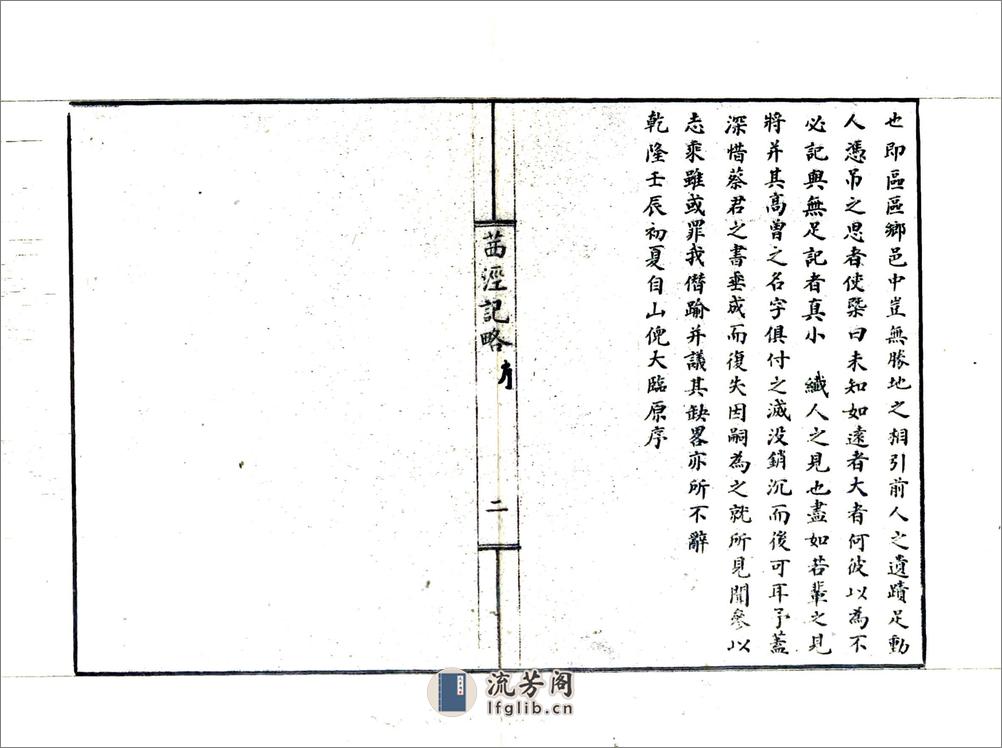 也即區區鄉邑中豈無勝地之相引前人之遺蹟足動
人憑吊之思者使槩曰未知如遠者大者何彼以為不
必記與無足記者真小　纖人之見也盡如若輩之見
將并其高曾之名字俱付之滅没銷沉而後可耳予蓋
深惜蔡君之書垂成而復失因嗣為之就所見聞參以
志乘雖或罪我僭踰并議其缺畧亦所不辭
乾隆壬辰初夏自山倪大臨原序
茜涇記略 序
二
流芳阁
lfglib.cn